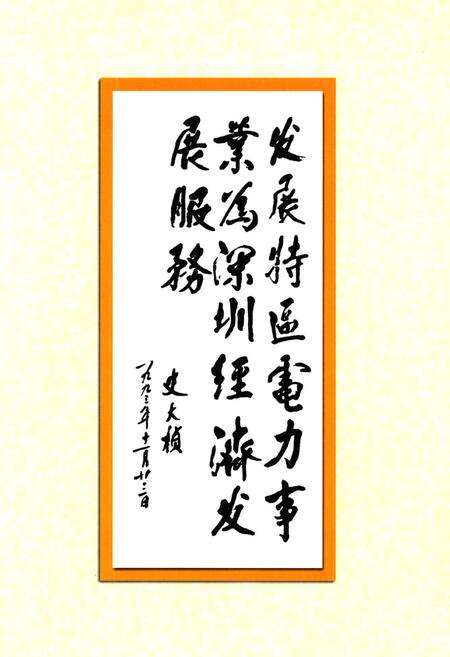 发展特區電力事
業為深圳經濟发
展服務
史大楨
一九九三年十一月廿三日